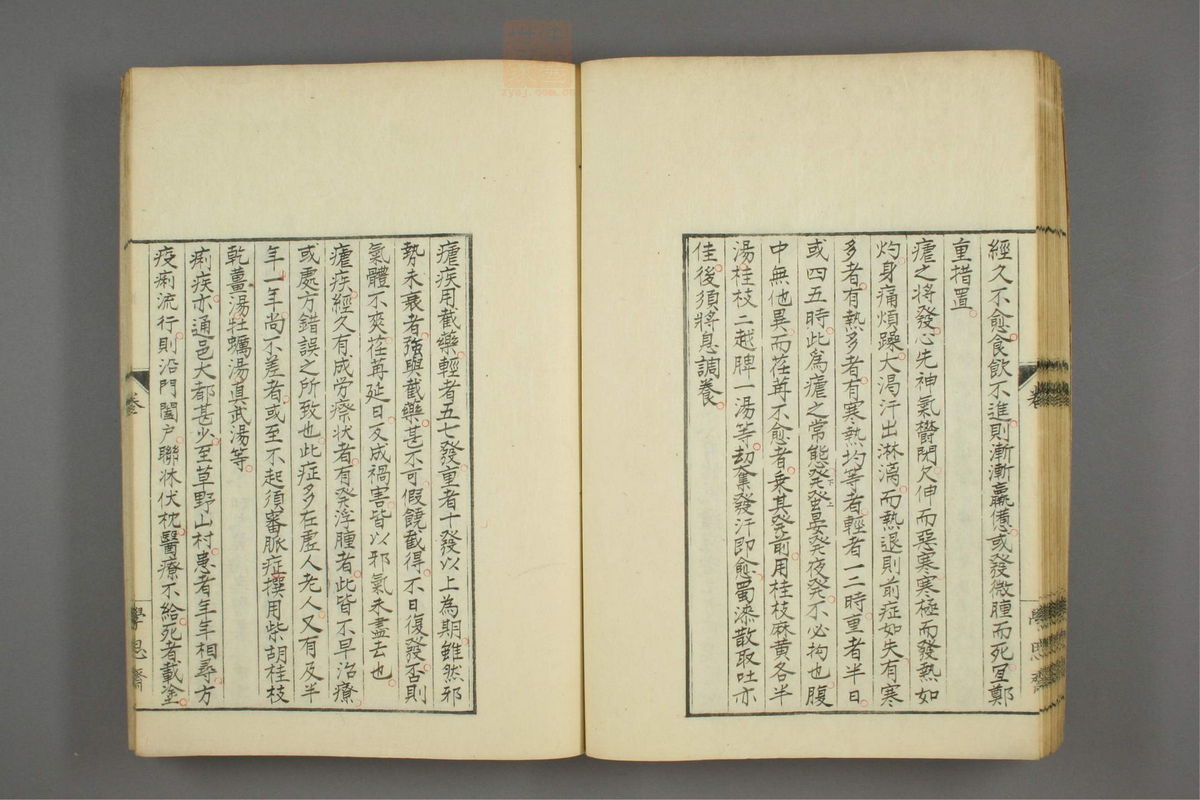 經久不愈食飲不進則漸漸羸憊或發微腫而死宜鄭
重措置
瘧之將發心先神氣欝閉欠伸而惡寒寒極而發熱如
灼身痛煩躁大渴汗出淋漓而熱退則前症如失有寒
多者有熱多者有寒熱均等者輕者一二時重者半日
或四五時此為瘧之常態発蚤晏発夜発不必拘也腹
中無他異而荏苒不愈者乗其発前用桂枝麻黄各半
湯桂枝二越脾一湯等劫奪發汗即愈蜀漆散取吐亦
佳後須將息調養
瘧疾用截藥輕者五七發重者十發以上為期雖然邪
勢未衰者強與截藥甚不可假饒截得不日復發否則
氣體不爽荏苒延日反成禍害皆以邪氣未盡去也
瘧疾經久有成労瘵状者有発浮腫者此皆不早治療
或處方錯誤之所致也此症多在虚人老人又有及半
年一年尚不差者或至不起須審脈症撰用柴胡桂枝
乾薑湯牡蠣湯真武湯等
痢疾亦通邑大都甚少至草野山村患者年年相尋方
疫痢流行則沿門闔户聯牀伏枕醫療不給死者載塗
學思齋